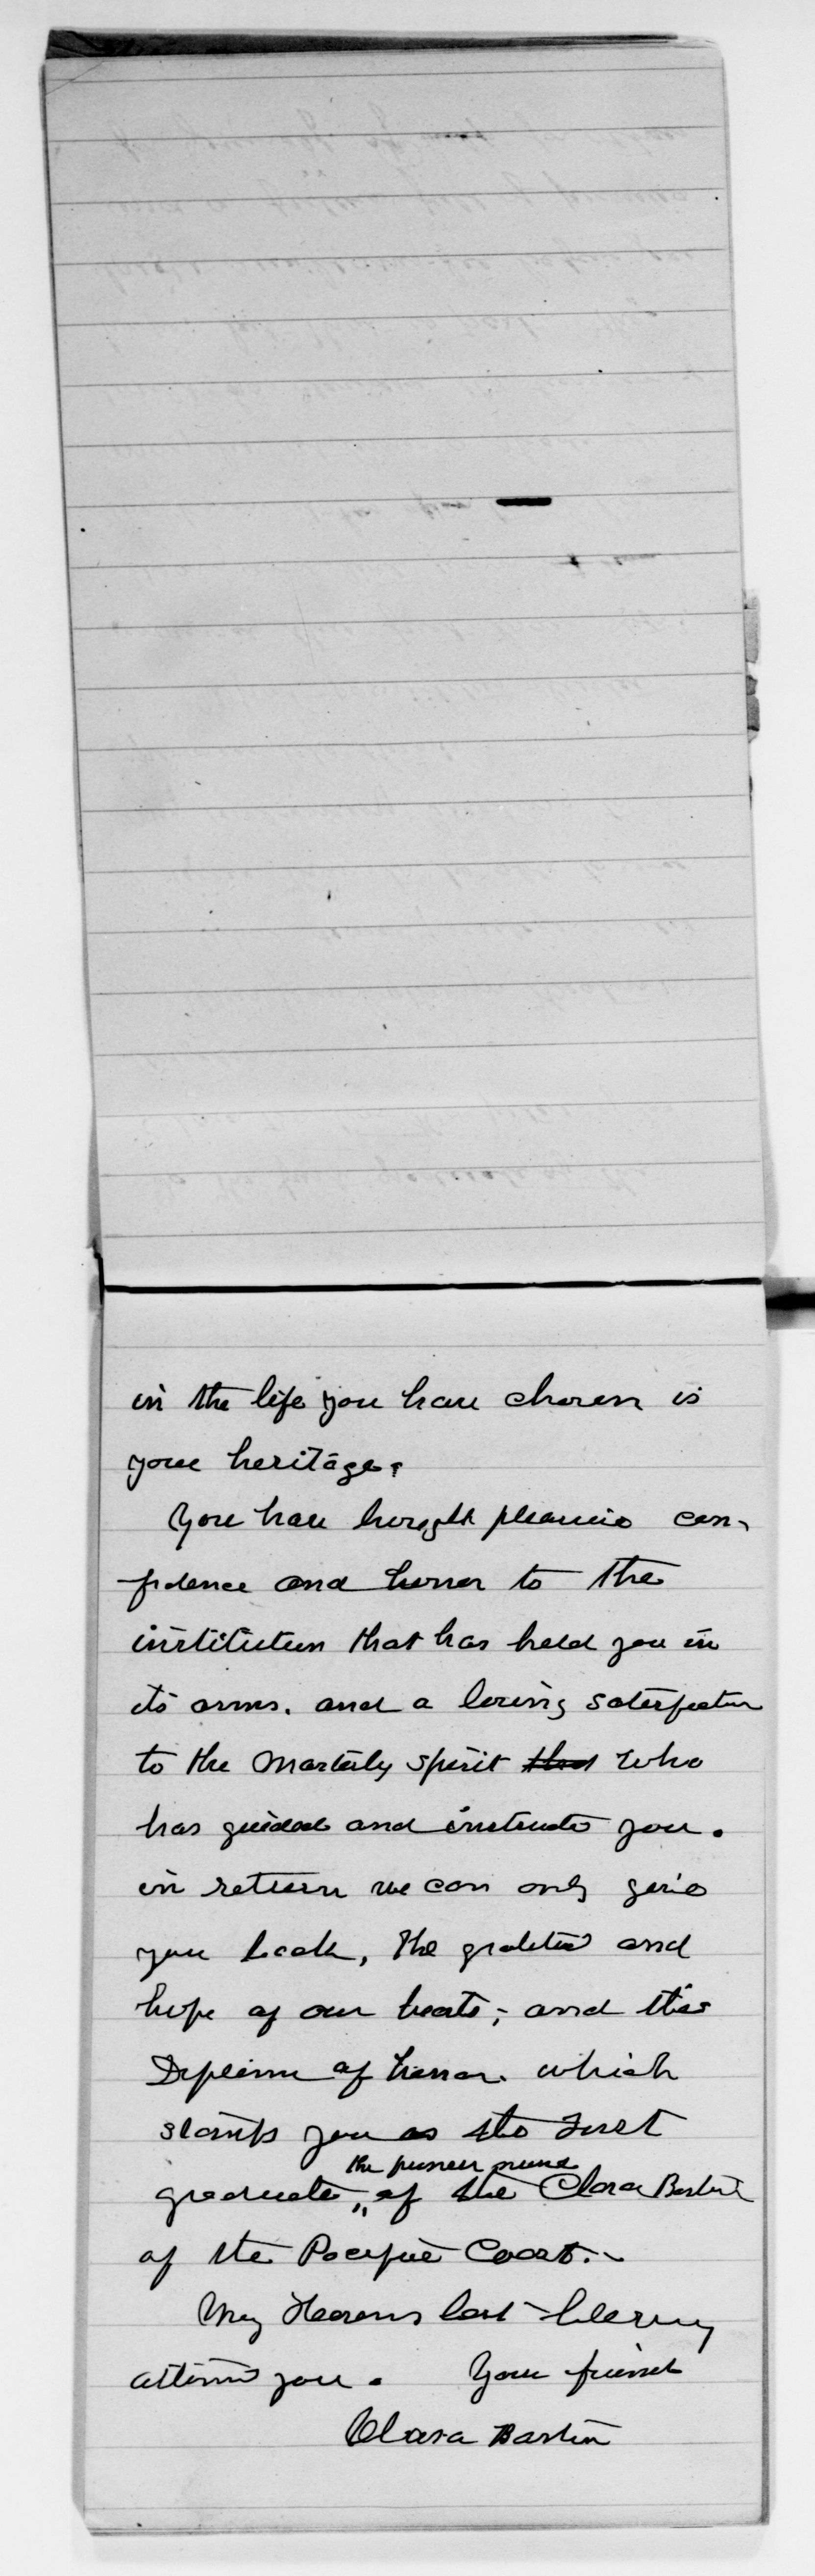 in the life you have chosen is
your heritage.
You have brought pleasure con-
fidence and honor to the
institution that has held you in
its arms. and a loving satisfaction
to the Masterly spirit that who
has guided and instructed you.
in return we can only give
you back, the gratitude and
hope of our hearts; and this
Diploma of honor. which
stamps you as the First
the pioneer nurse
graduate, of the Clara Barton
of the Pacific Coast.
May Heavens best blessing
attend you. Your friend
Clara Barton